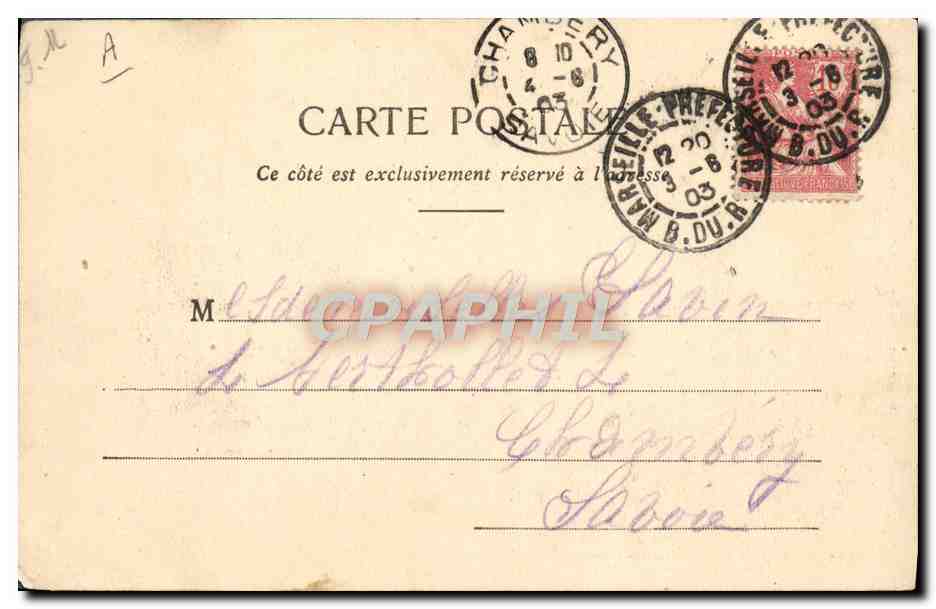 J. M A
CHAMBERY
8 10
4 -6
03
SAVOIE
MARSEILLE-PREFECTURE
12 20
3 -6
03
B. DU. R.
MARSEILLE-PREFECTURE
12 20
3 -6
03
B. DU. R.
CARTE POSTALE
Ce côté est exclusivement réservé à l'adresse
Mesdemoiselles Savin
Berthollet
Chambéry
Savoie
CPAPHIL